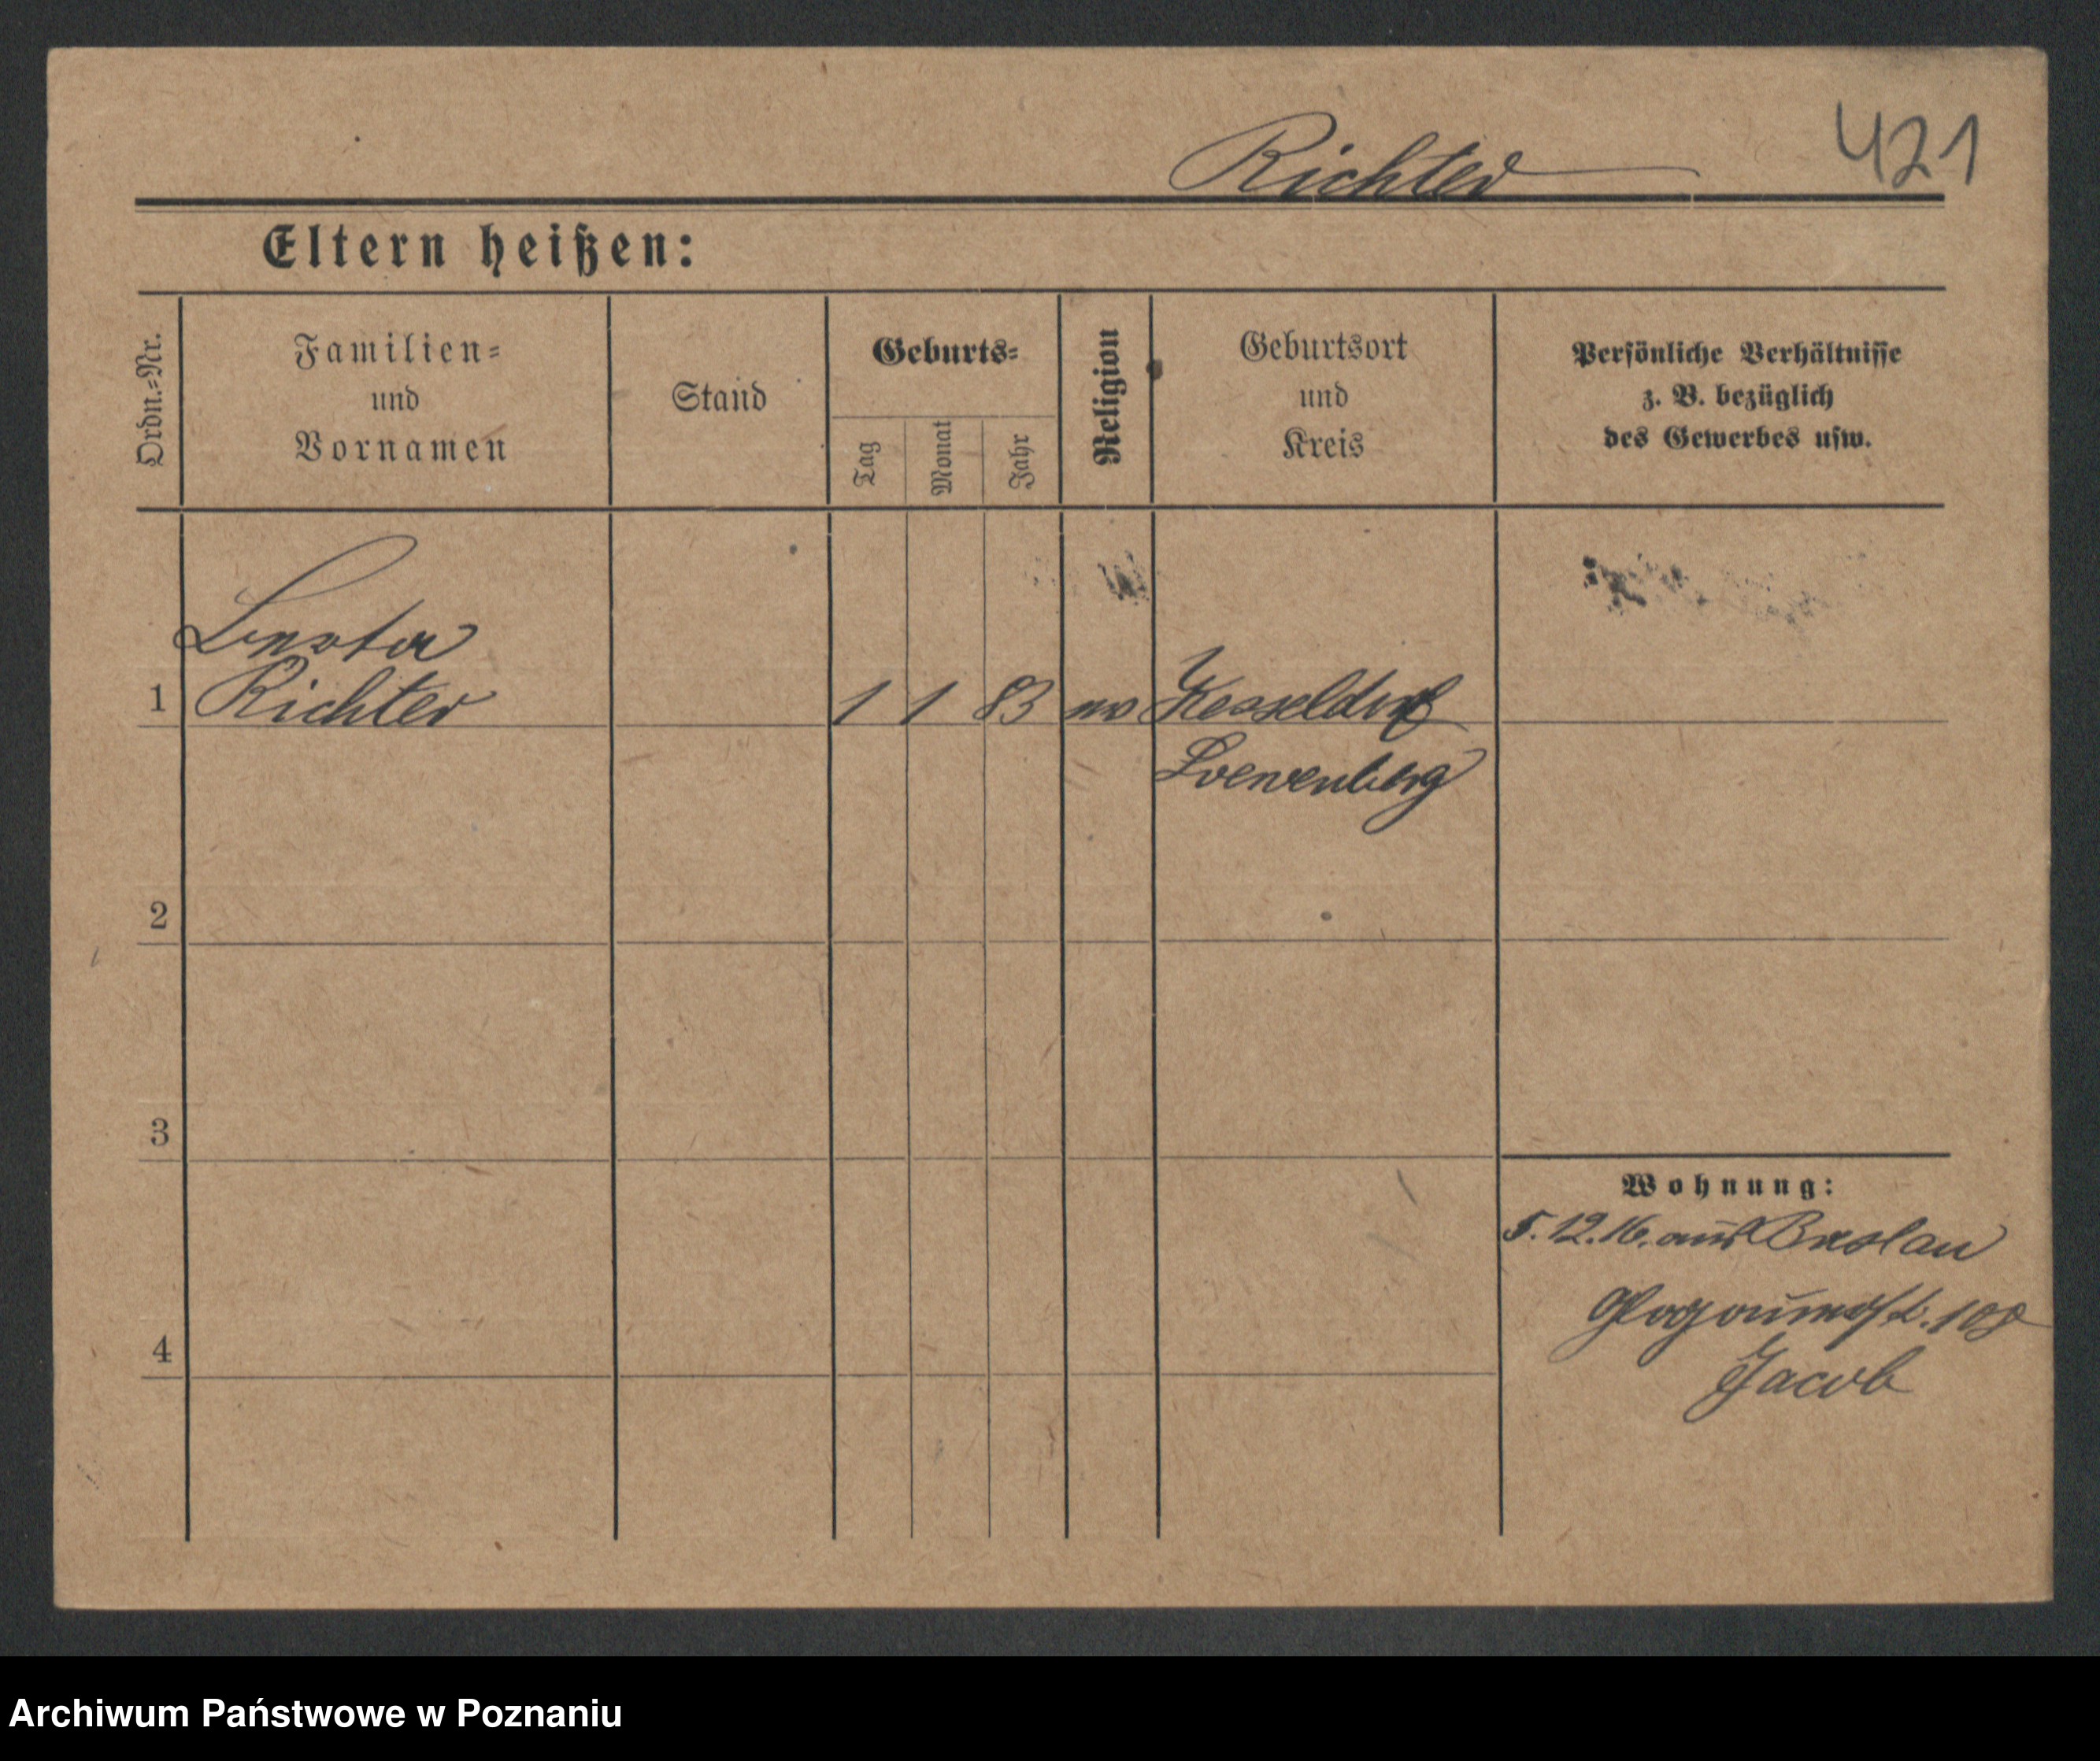 Richter 421
Eltern heißen:
Ordn.=Nr.
Familien=
und
Vornamen
Stand
Geburts=
Tag
Monat
Jahr
Religion
Geburtsort
und
Kreis
Persönliche Verhältnisse
z. B. bezüglich
des Gewerbes usw.
1 Richter 1 1 83 Kesseldorf
Loewenberg
2
3
4
Wohnung:
5.12.16. aus Breslau
Glogauerstr. 108
Jacob
Archiwum Państwowe w Poznaniu